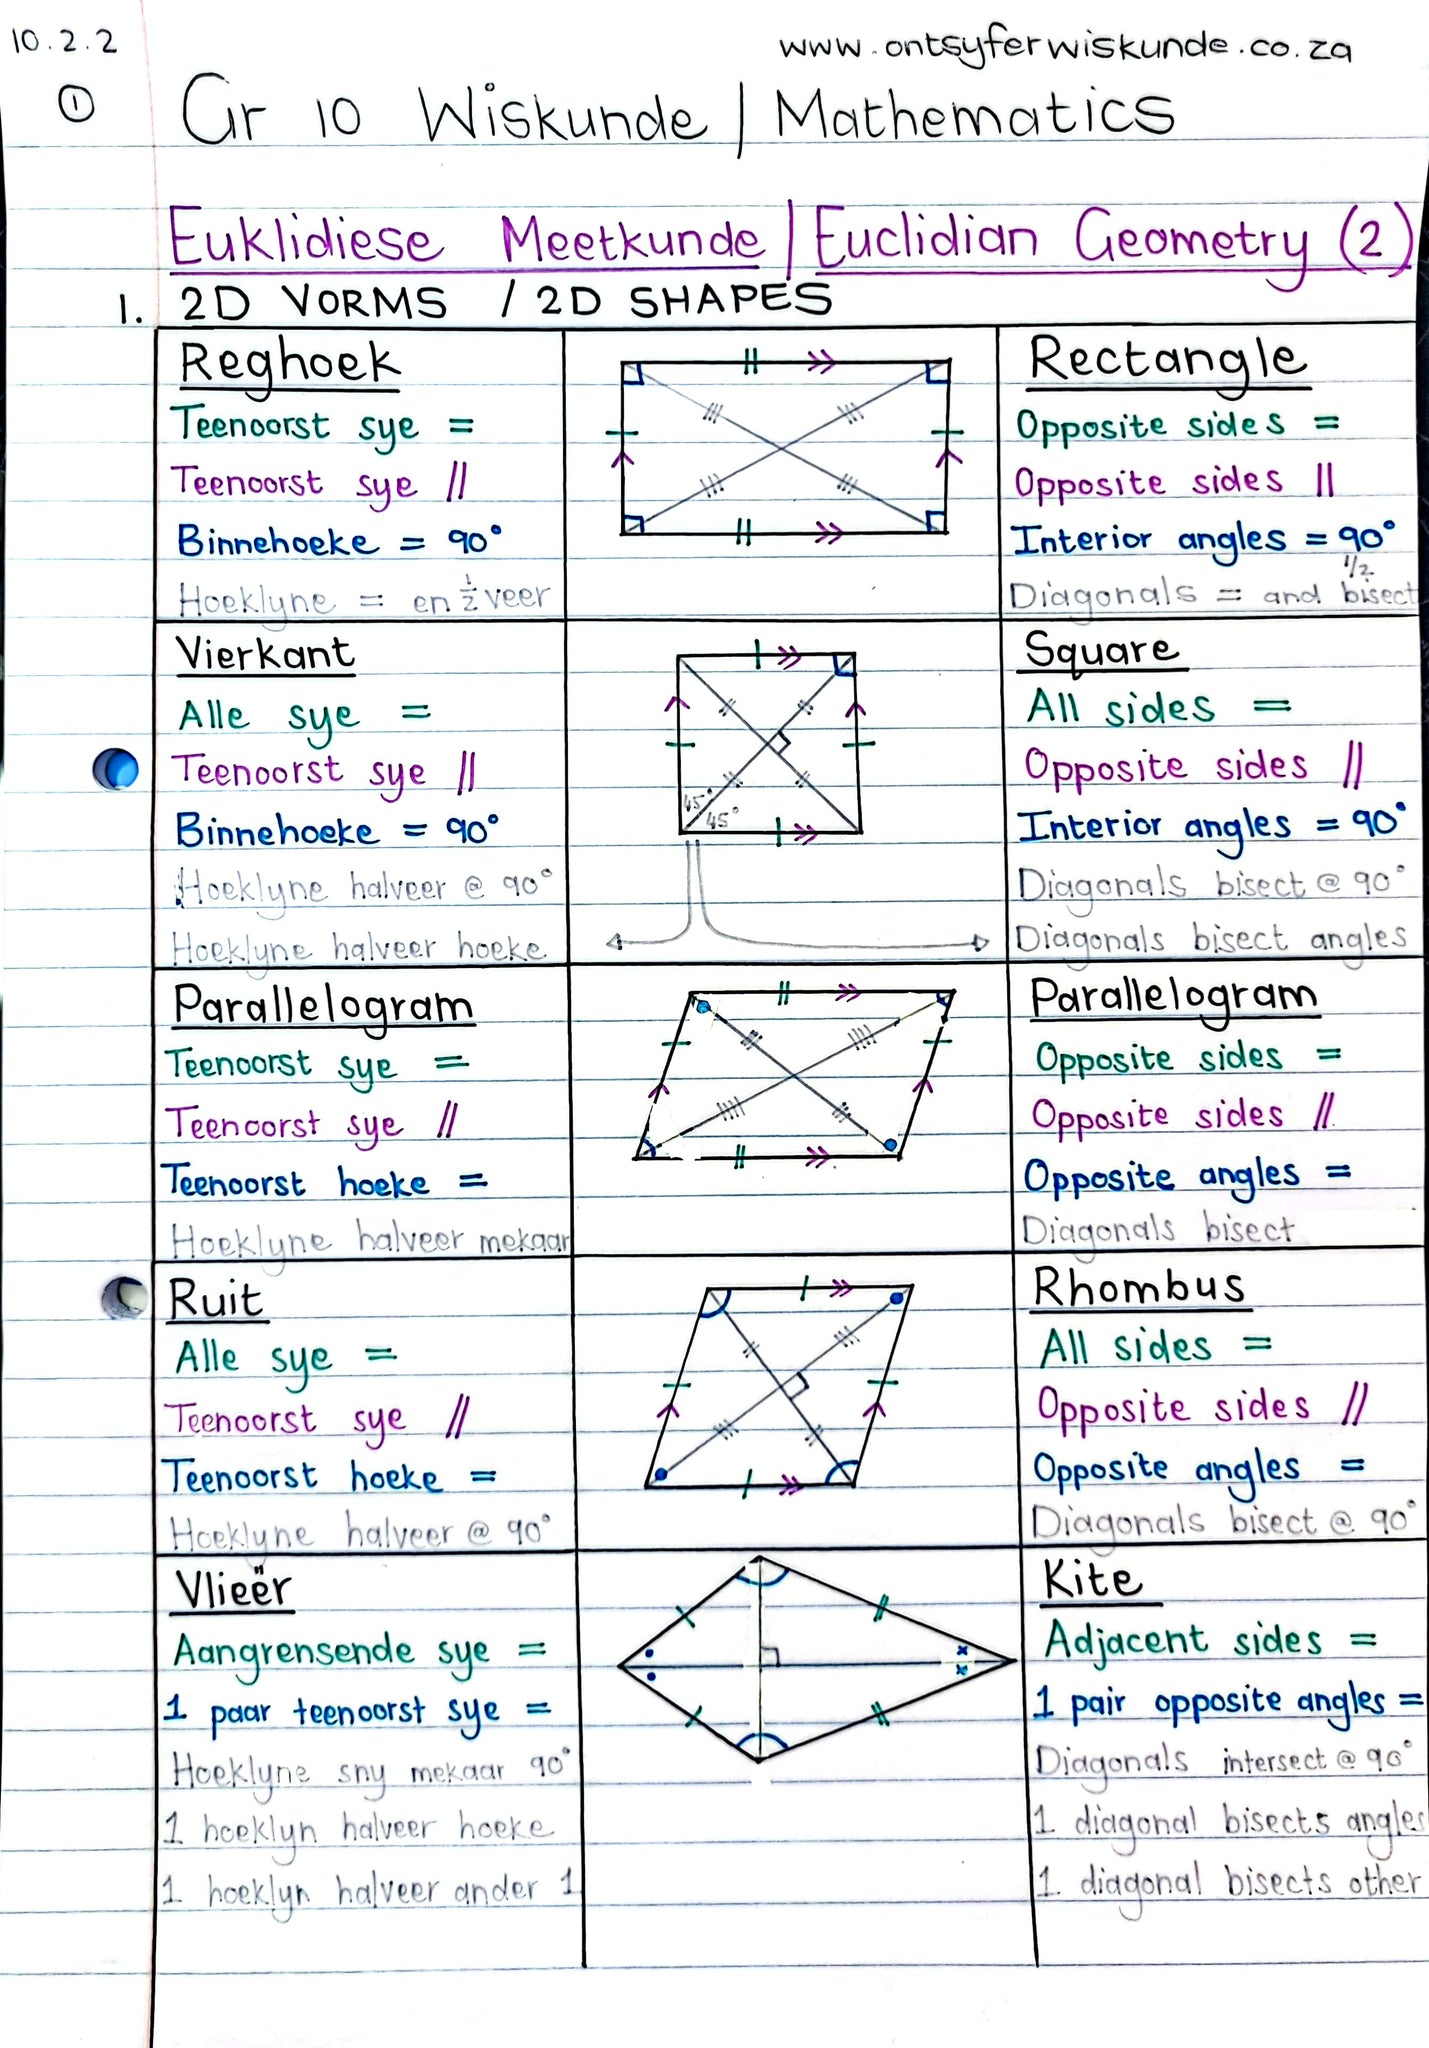 10.2.2
www.ontsyferwiskunde.co.za
① Gr 10 Wiskunde | Mathematics
Euklidiese Meetkunde | Euclidian Geometry (2)
1. 2D VORMS / 2D SHAPES
Reghoek
Teenoorst sye =
Teenoorst sye //
Binnehoeke = 90°
Hoeklyne = en ½ veer
Rectangle
Opposite sides =
Opposite sides ||
Interior angles = 90°
1/2
Diagonals = and bisect
Vierkant
Alle sye =
Teenoorst sye //
Binnehoeke = 90°
Hoeklyne halveer @ 90°
Hoeklyne halveer hoeke
45°
45°
Square
All sides =
Opposite sides //
Interior angles = 90°
Diagonals bisect @ 90°
Diagonals bisect angles
Parallelogram
Teenoorst sye =
Teenoorst sye //
Teenoorst hoeke =
Hoeklyne halveer mekaar
Parallelogram
Opposite sides =
Opposite sides //
Opposite angles =
Diagonals bisect
Ruit
Alle sye =
Teenoorst sye //
Teenoorst hoeke =
Hoeklyne halveer @ 90°
Rhombus
All sides =
Opposite sides //
Opposite angles =
Diagonals bisect @ 90°
Vlieër
Aangrensende sye =
1 paar teenoorst sye =
Hoeklyne sny mekaar 90°
1 hoeklyn halveer hoeke
1 hoeklyn halveer ander 1
Kite
Adjacent sides =
1 pair opposite angles =
Diagonals intersect @ 90°
1 diagonal bisects angles
1 diagonal bisects other